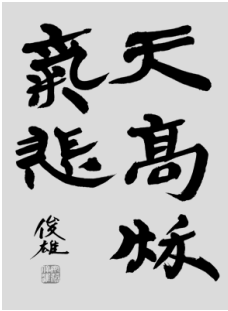 天高秌
氣悲
俊雄